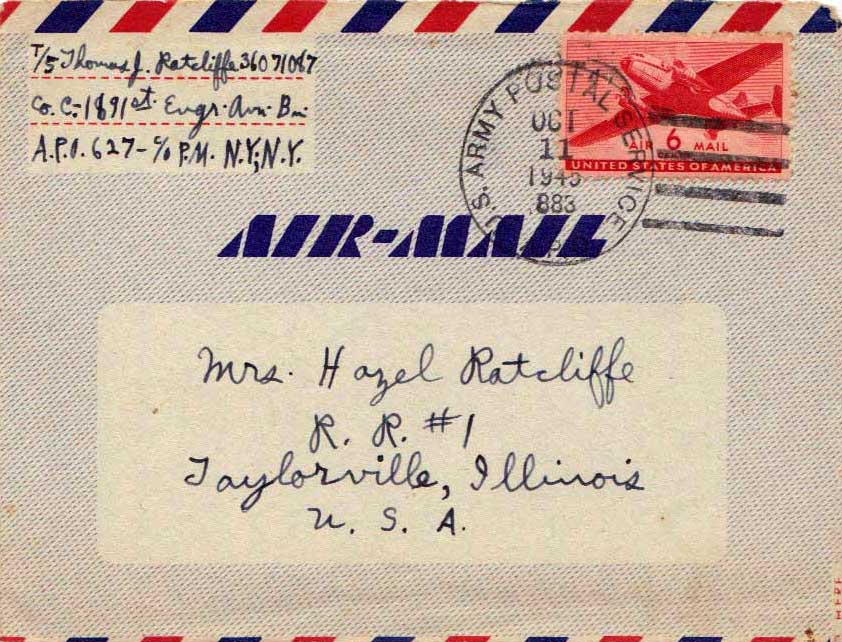 T/5 Thomas J. Ratcliffe 36071087
Co. C.-1891st Engr. Avn. Bn.
A.P.O. 627-℅ P.M. N.Y., N.Y.
U.S. ARMY POSTAL SERVICE
OCT
11
1945
883
AIR 6 MAIL
UNITED STATES OF AMERICA
AIR-MAIL
Mrs. Hazel Ratcliffe
R. R. #1
Taylorville, Illinois
U. S. A.